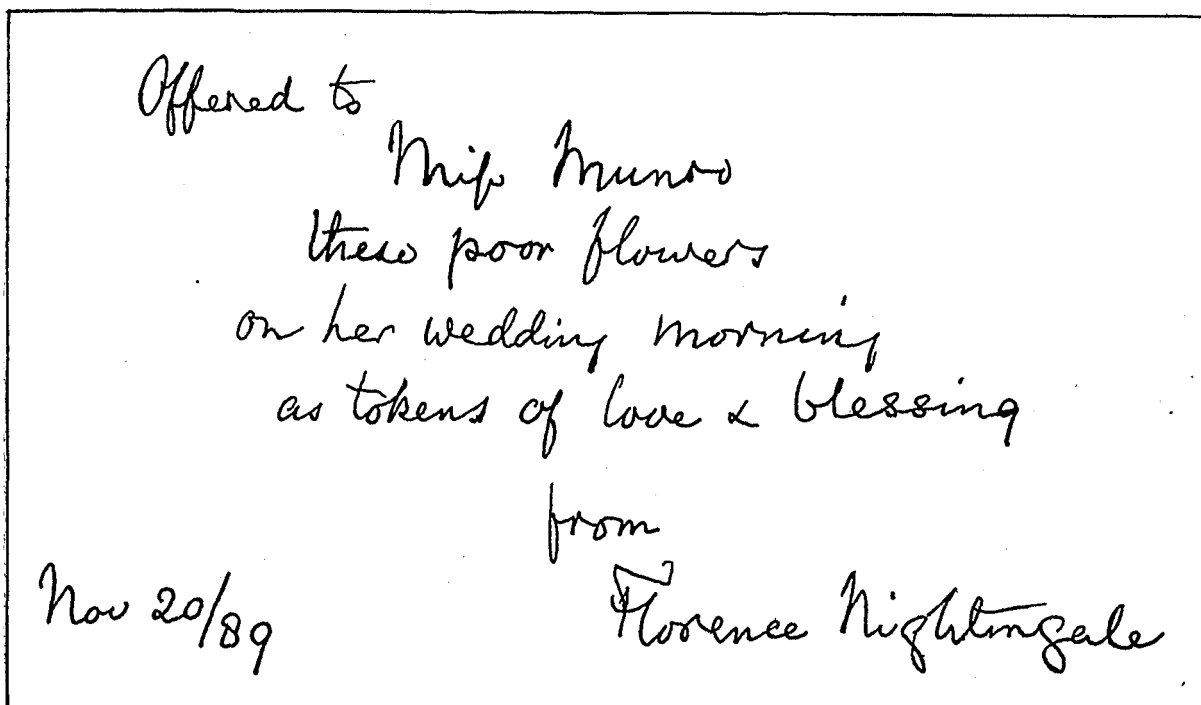 Offered to
Miſs Munro
these poor flowers
on her wedding morning
as tokens of love & blessing
from
Nov 20/89 Florence Nightingale